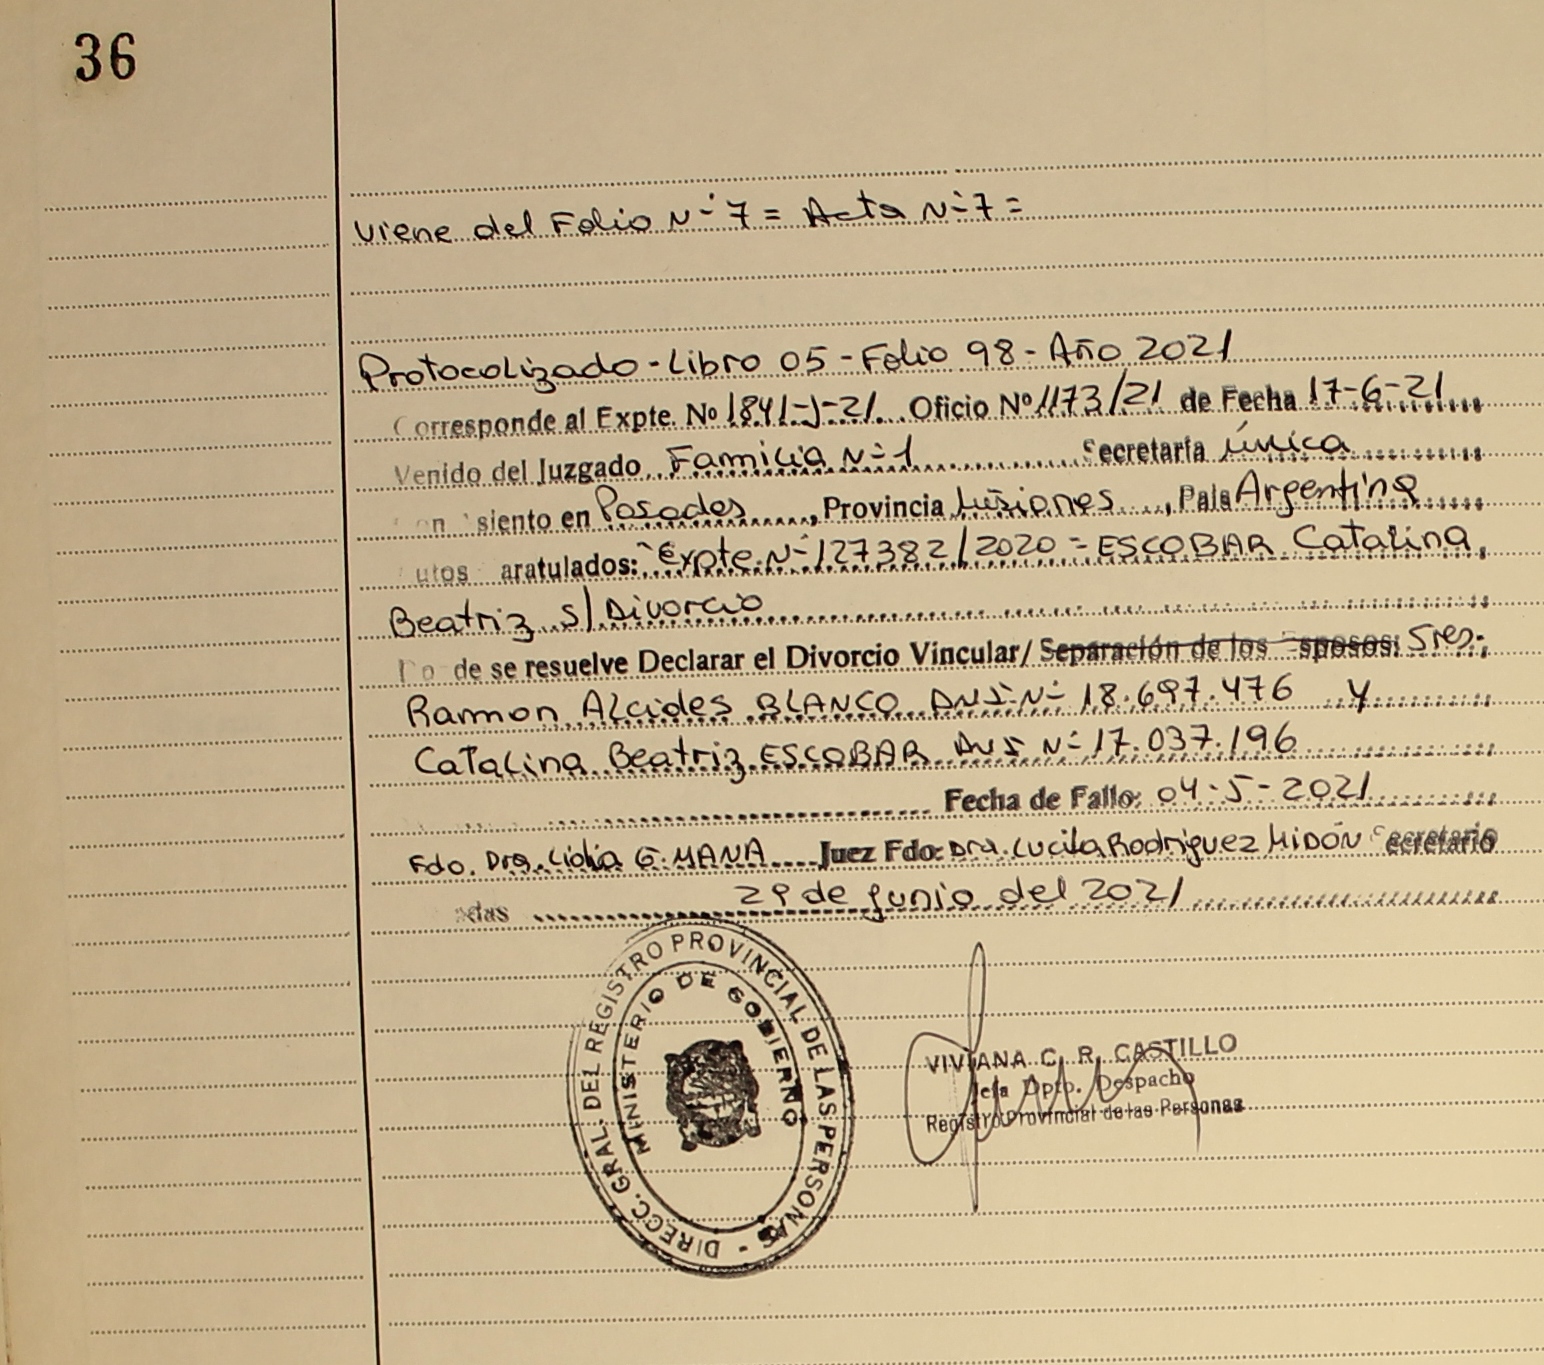 36
Viene del Folio N° 7 = Acta N° 7 =
Protocolizado - Libro 05 - Folio 98 - Año 2021
Corresponde al Expte. Nº 1841-J-21 Oficio Nº 1173/21 de Fecha 17-6-21
Venido del Juzgado Familia N° 1 Secretaría Única
on siento en Posadas, Provincia Misiones, País Argentina
utos aratulados: "Expte. N° 127382/2020 - ESCOBAR Catalina
Beatriz s/ Divorcio
de se resuelve Declarar el Divorcio Vincular/ Separación de los Esposos: Sres.
Ramon Alcides BLANCO DNI N° 18.697.476 y
Catalina Beatriz ESCOBAR DNI N° 17.037.196
Fecha de Fallo: 04-5-2021
Fdo. Dra. Lidia E. MANA Juez Fdo: Dra. Lucila Rodriguez MIDÓN Secretario
das 29 de Junio del 2021
DIRECC. GRAL. DEL REGISTRO PROVINCIAL DE LAS PERSONAS -
MINISTERIO DE GOBIERNO
VIVIANA C. R. CASTILLO
Jefa Dpto. Despacho
Registro Provincial de las Personas